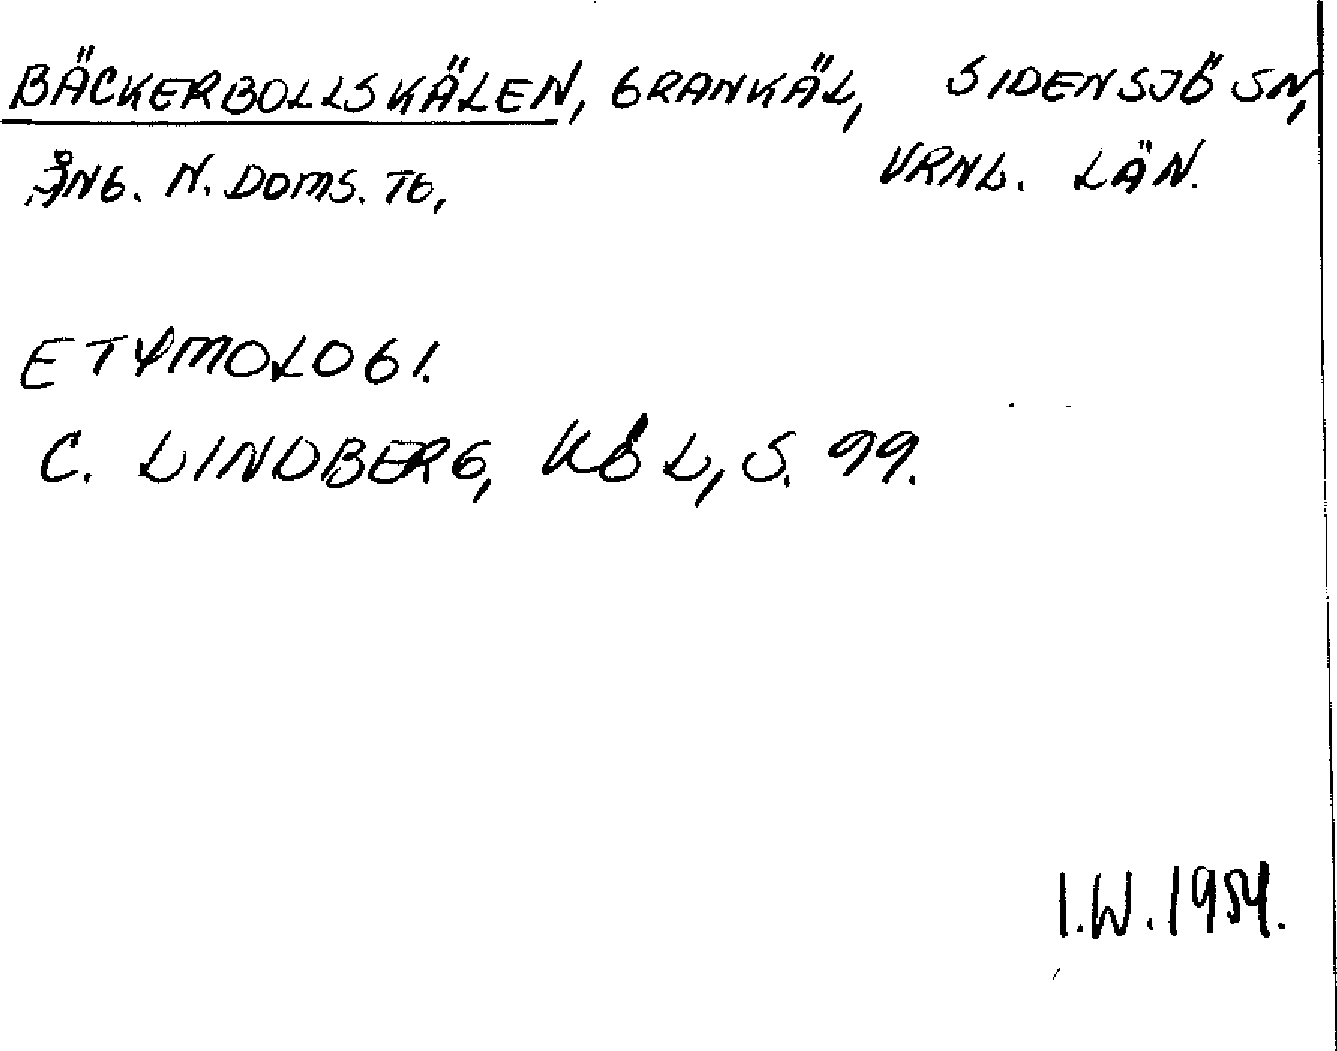 BÄCKERBOLLSKÄLEN, GRANKÄL, SIDENSJÖ SN,
ÅNG. N. DOMS. TG, VRNL. LÄN.
ETYMOLOGI.
C. LINDBERG, KÖL, S. 99.
I.W. 1954.